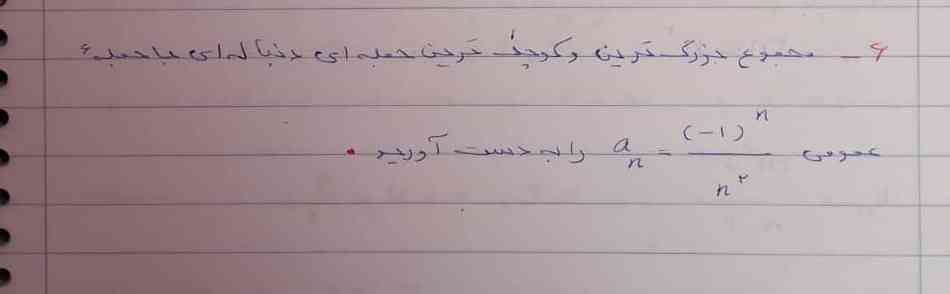 ۶ – مجموع بزرگ‌ترین و کوچک‌ترین جمله‌ای دنباله‌ای با جمله‌ء
عمومی aₙ = (-۱)ⁿ / n² را به دست آورید.